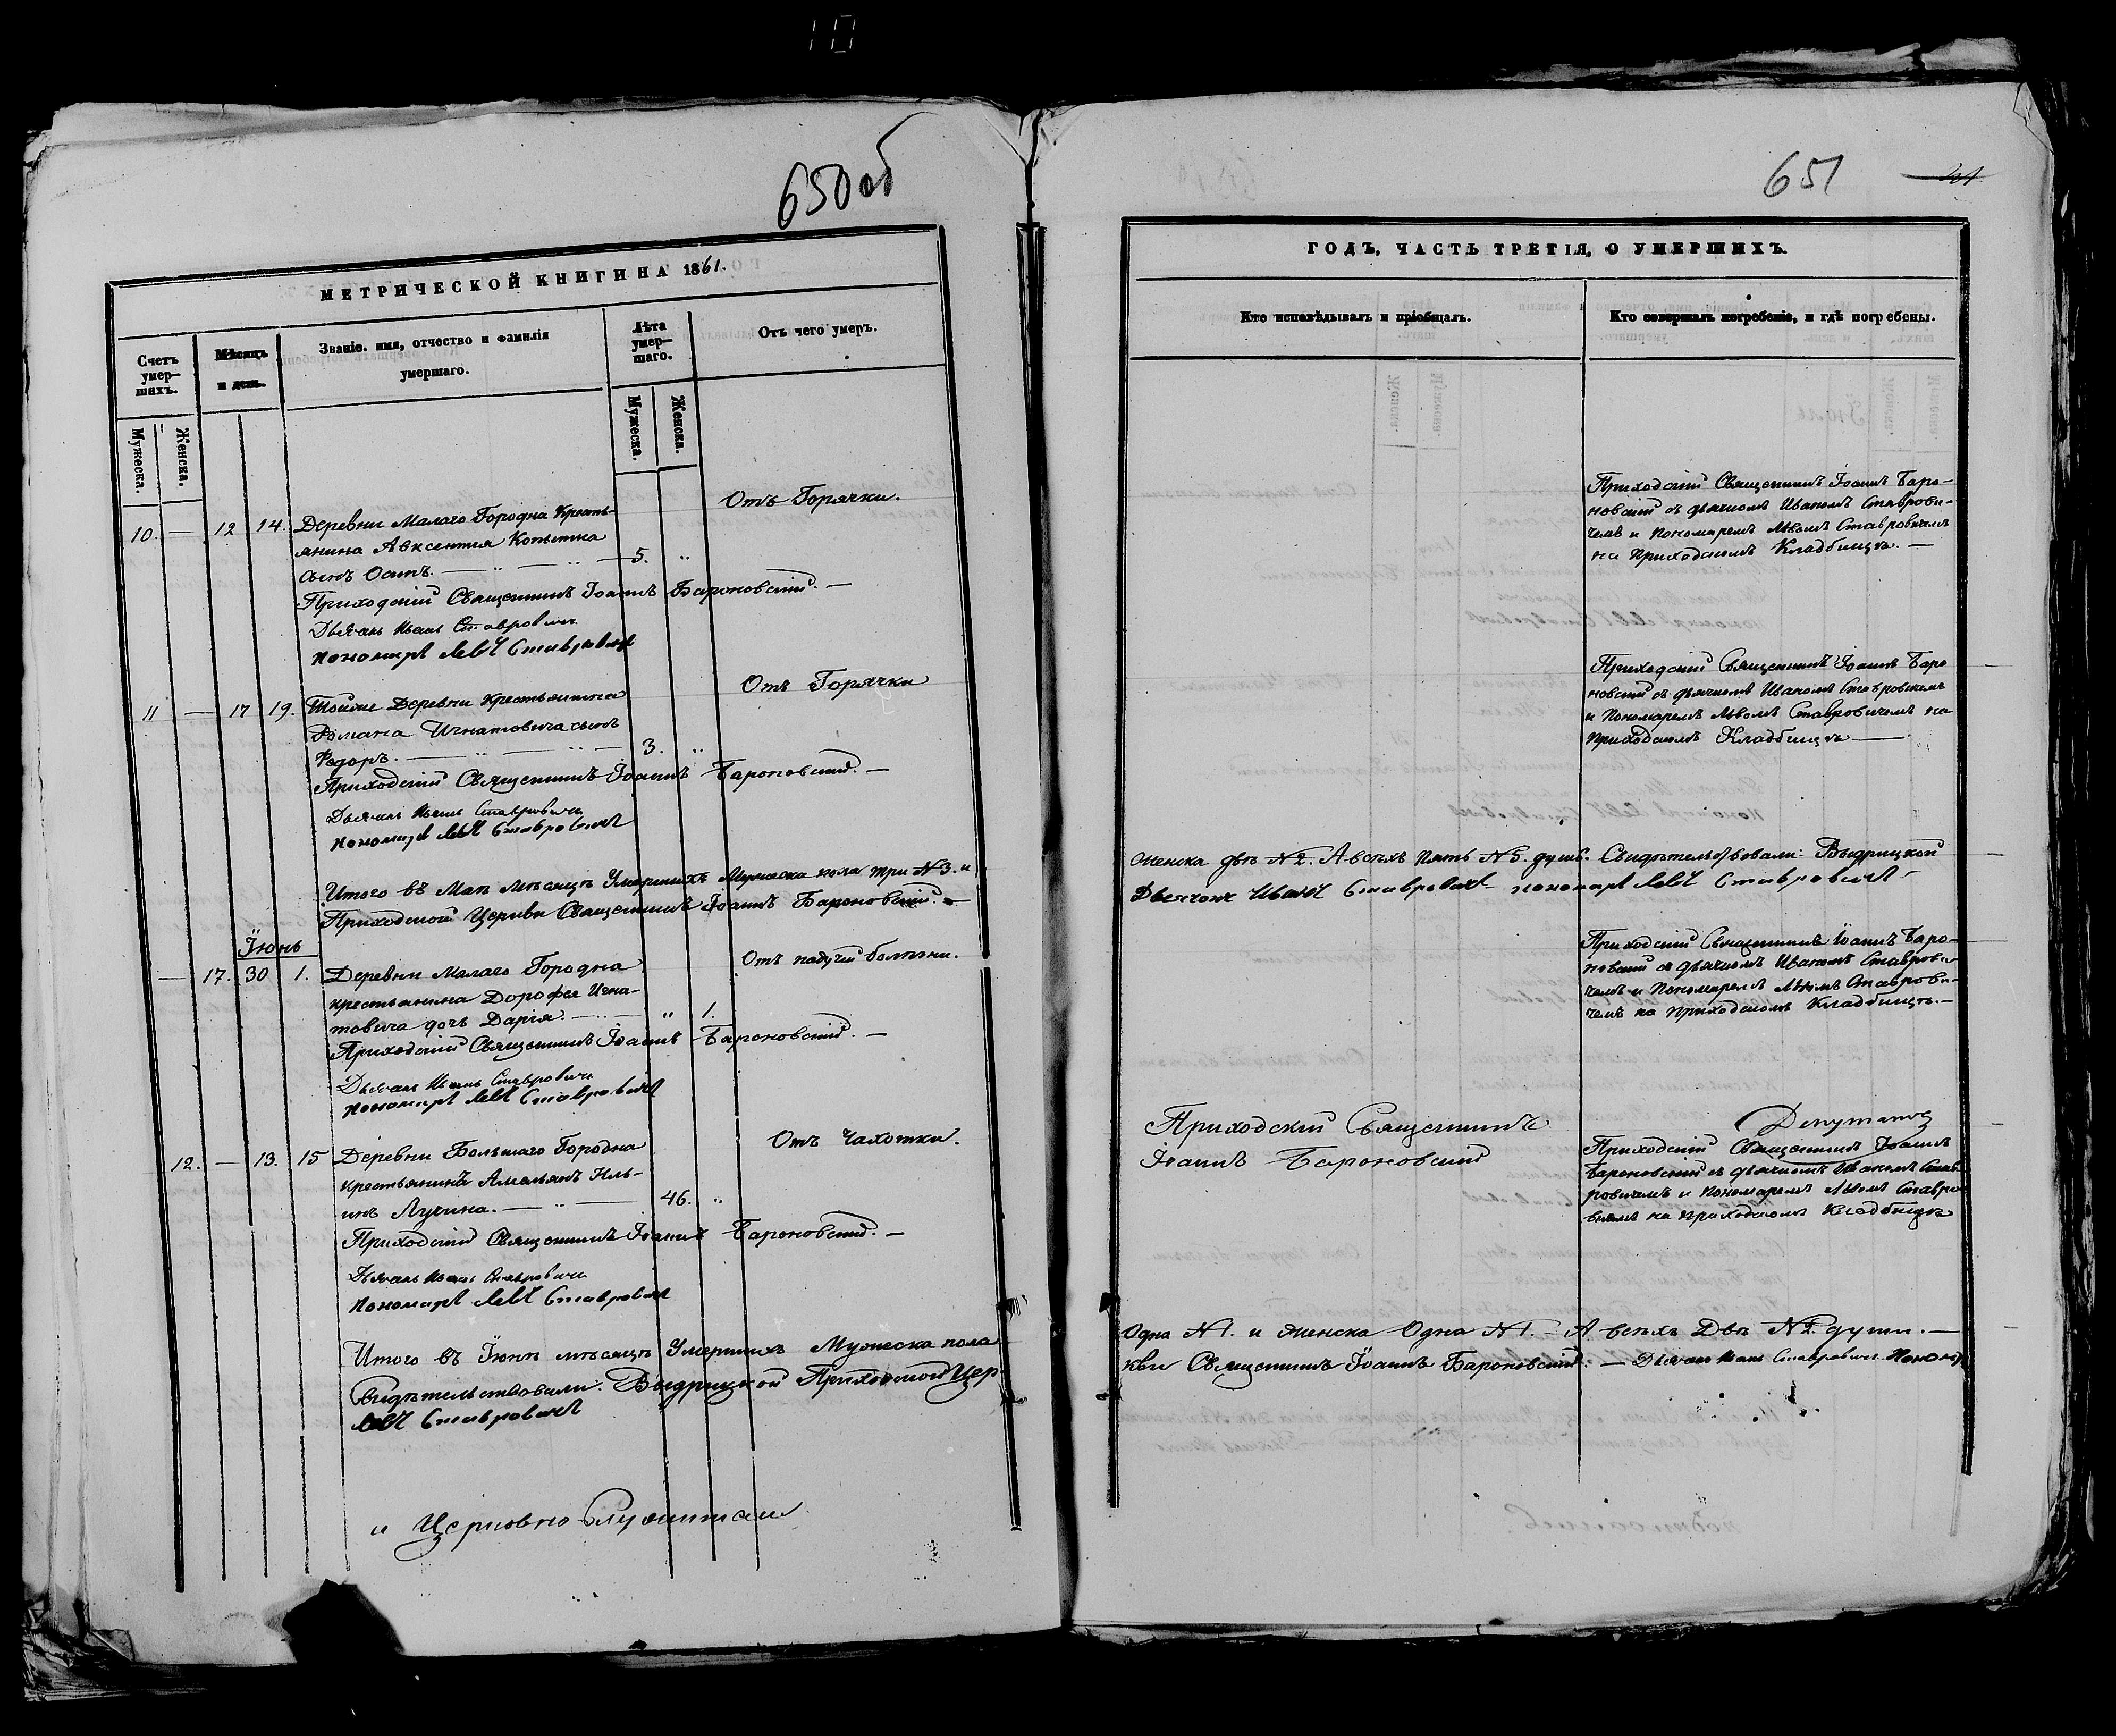 10
650об
МЕТРИЧЕСКОЙ КНИГИ НА 1861.
Счетъ умер-
шихъ.
Мѣсяцъ
и день.
Званіе. имя, отчество и фамилія
умершаго.
Лѣта
умер-
шаго.
Отъ чего умеръ.
Мужеска.
Женска.
Мужеска.
Женска.
10. — 12 14. Деревни Малаго Городна Кресть-
янина Авксентія Копытка
сынъ Осипъ. — 5. „ Отъ Горячки.
Приходскій Священникъ Іоаннъ Бароновскій. —
Дьячокъ Иванъ Ставровичъ
пономарь Левъ Ставровичъ
11 — 17 19. Тойже Деревни Крестьянина
Романа Игнатовича сынъ
Федоръ. — 3. „ Отъ Горячки
Приходскій Священникъ Іоаннъ Бароновскій. —
Дьячокъ Иванъ Ставровичъ
пономарь Левъ Ставровичъ
Итого въ Маѣ мѣсяцѣ Умершихъ Мужеска пола три №3. и
Приходской Церкви Священникъ Іоаннъ Бароновскій. —
Іюнь
— 17. 30 1. Деревни Малаго Городна
крестьянина Дорофея Игна-
товича дочь Дарія. — „ 1. Отъ падучей болѣзни.
Приходскій Священникъ Іоаннъ Бароновскій. —
Дьячокъ Иванъ Ставровичъ
пономарь Левъ Ставровичъ
12. — 13. 15 Деревни Большаго Городна
крестьянинъ Амельянъ Иль-
инъ Лучина. — 46. „ Отъ Чахотки.
Приходскій Священникъ Іоаннъ Бароновскій. —
Дьячокъ Иванъ Ставровичъ
пономарь Левъ Ставровичъ
Итого въ Іюнѣ мѣсяцѣ Умершихъ Мужеска пола
Свидѣтельствовали: Выдрицкой Приходской Цер
Левъ Ставровичъ
и Церковно Служители
651
ГОДЪ, ЧАСТЬ ТРЕТІЯ, О УМЕРШИХЪ.
Кто исповѣдывалъ и пріобщалъ.
Кто совершалъ погребеніе, и гдѣ погребены.
Приходскій Священникъ Іоаннъ Баро-
новскій съ дьячкомъ Иваномъ Ставрови-
чемъ и Пономаремъ Львомъ Ставровичемъ
на Приходскомъ Кладбищѣ. —
Приходскій Священникъ Іоаннъ Баро
новскій съ дьячкомъ Иваномъ Ставровичемъ
и Пономаремъ Львомъ Ставровичемъ на
Приходскомъ Кладбищѣ —
Женска двѣ №2. А всѣхъ пять №5. душъ. Свидѣтельствовали: Выдрицкой
Дьячокъ Иванъ Ставровичъ пономарь Левъ Ставровичъ
Приходскій Священникъ Іоаннъ Баро-
новскій съ дьячкомъ Иваномъ Ставрови
чемъ и Пономаремъ Львомъ Ставрови-
чемъ на Приходскомъ Кладбищѣ. —
Приходскій Священникъ
Іоаннъ Бароновскій
Депутатъ
Приходскій Священникъ Іоаннъ
Бароновскій съ дьячкомъ Иваномъ Став
ровичемъ и Пономаремъ Львомъ Ставро
вичемъ на Приходскомъ Кладбищѣ
Одна №1. и Женска Одна №1. — А всѣхъ Двѣ №2. души. —
кви Священникъ Іоаннъ Бароновскій. — Дьячокъ Иванъ Ставровичъ. Пономарь